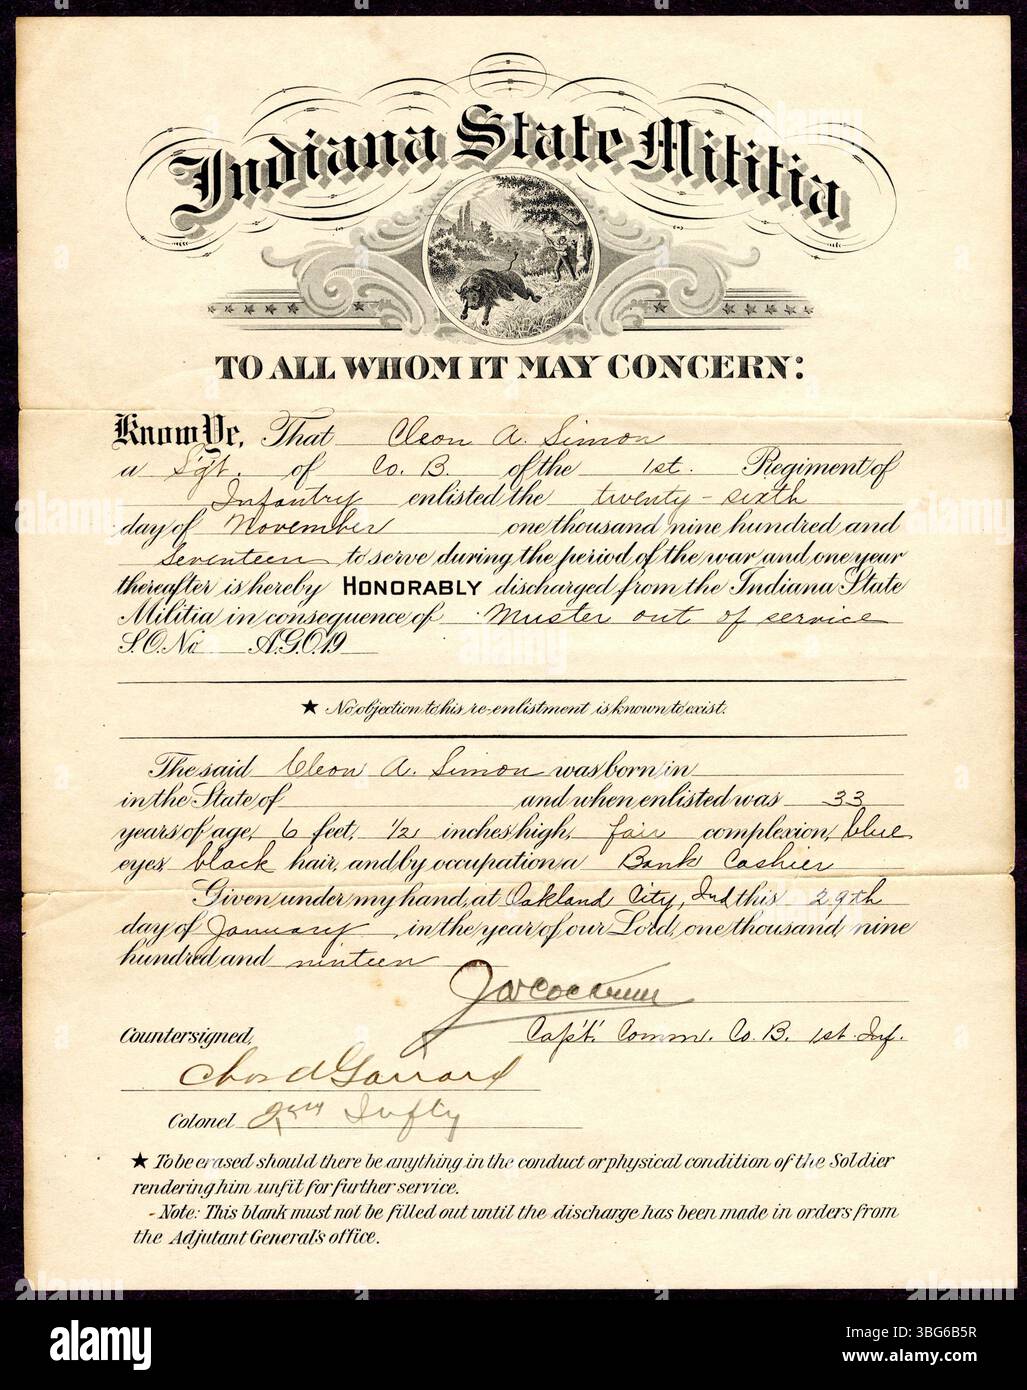 Indiana State Mititia
TO ALL WHOM IT MAY CONCERN:
Know Ye, That Cleon A. Simon
a Sgt. of Co. B. of the 1st. Regiment of
Infantry enlisted the twenty-sixth
day of November one thousand nine hundred and
seventeen to serve during the period of the war and one year
thereafter is hereby HONORABLY discharged from the Indiana State
Militia in consequence of Muster out of service
S.O. No A.G.O. 19
★ No objection to his re-enlistment is known to exist.
The said Cleon A. Simon was born in
in the State of and when enlisted was 33
years of age, 6 feet, 1/2 inches high, fair complexion, blue
eyes, black hair, and by occupation a Bank Cashier
Given under my hand, at Oakland City, Ind this 29th
day of January, in the year of our Lord, one thousand nine
hundred and ninteen
Capt. Comm. Co. B. 1st Inf.
Countersigned,
Colonel
★ To be erased should there be anything in the conduct or physical condition of the Soldier
rendering him unfit for further service.
- Note: This blank must not be filled out until the discharge has been made in orders from
the Adjutant General's office.
alamy
Image ID: 3BG6B5R
www.alamy.com